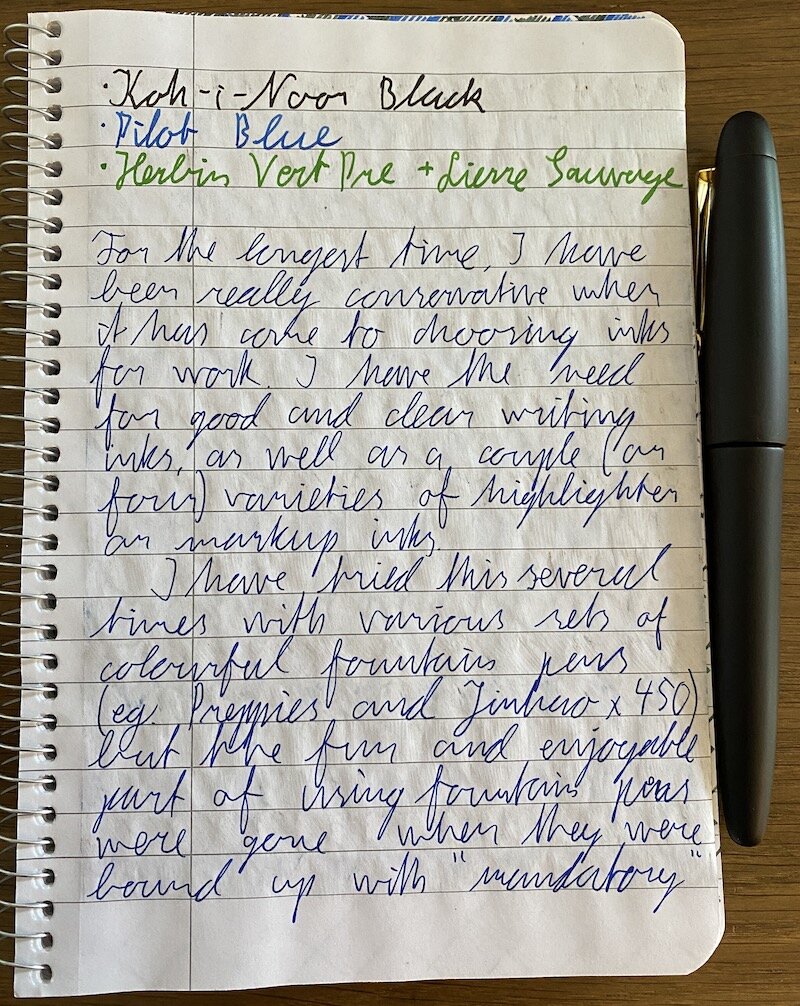 · Koh-i-Noor Black
· Pilot Blue
· Herbin Vert Pre + Lierre Sauvage
For the longest time, I have
been really conservative when
it has come to choosing inks
for work. I have the need
for good and clear writing
inks, as well as a couple (or
four) varieties of highlighter
or markup inks.
I have tried this several
times with various sets of
colourful fountain pens
(eg. Preppies and Jinhao x450)
but the fun and enjoyable
part of using fountain pens
were gone when they were
bound up with "mandatory"